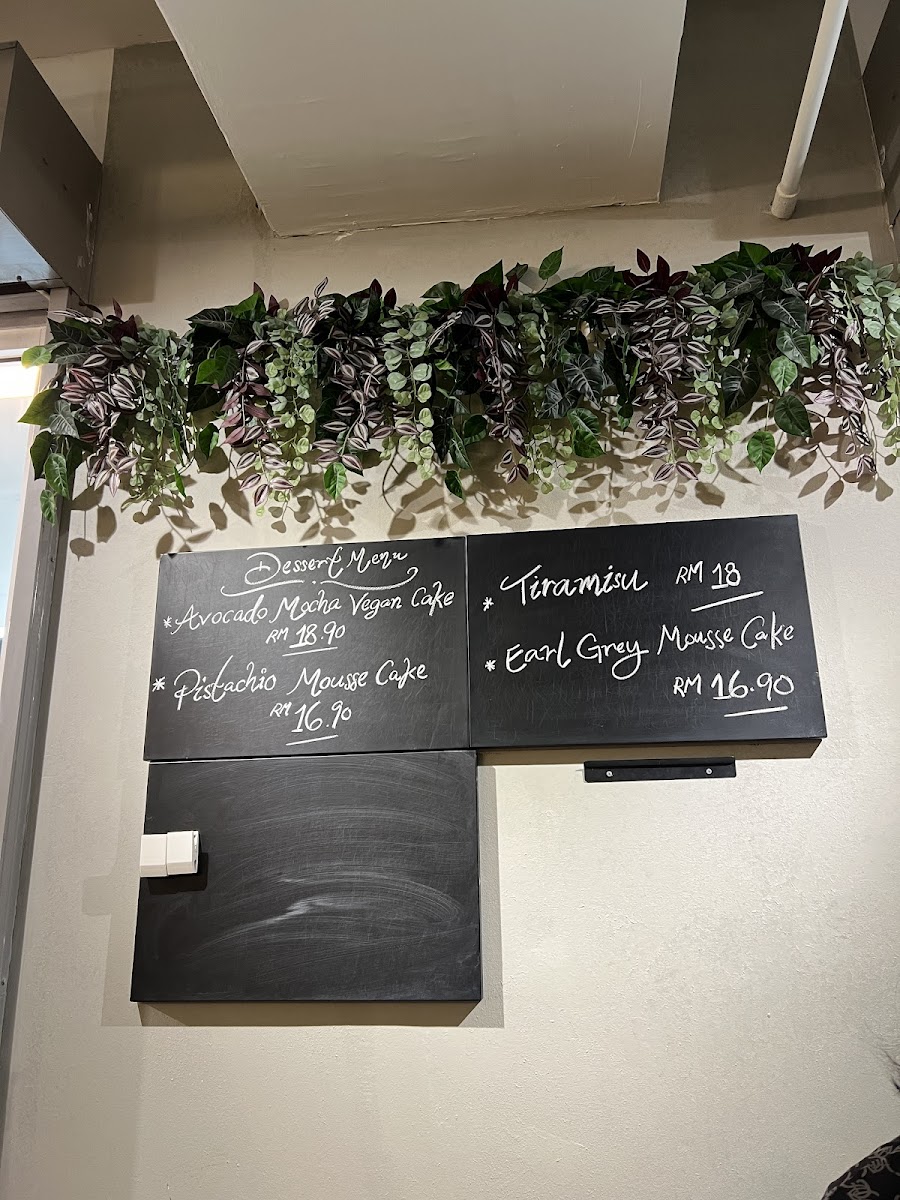 Dessert Menu
* Avocado Mocha Vegan Cake
RM 18.90
* Pistachio Mousse Cake
RM 16.90
* Tiramisu RM 18
* Earl Grey Mousse Cake
RM 16.90